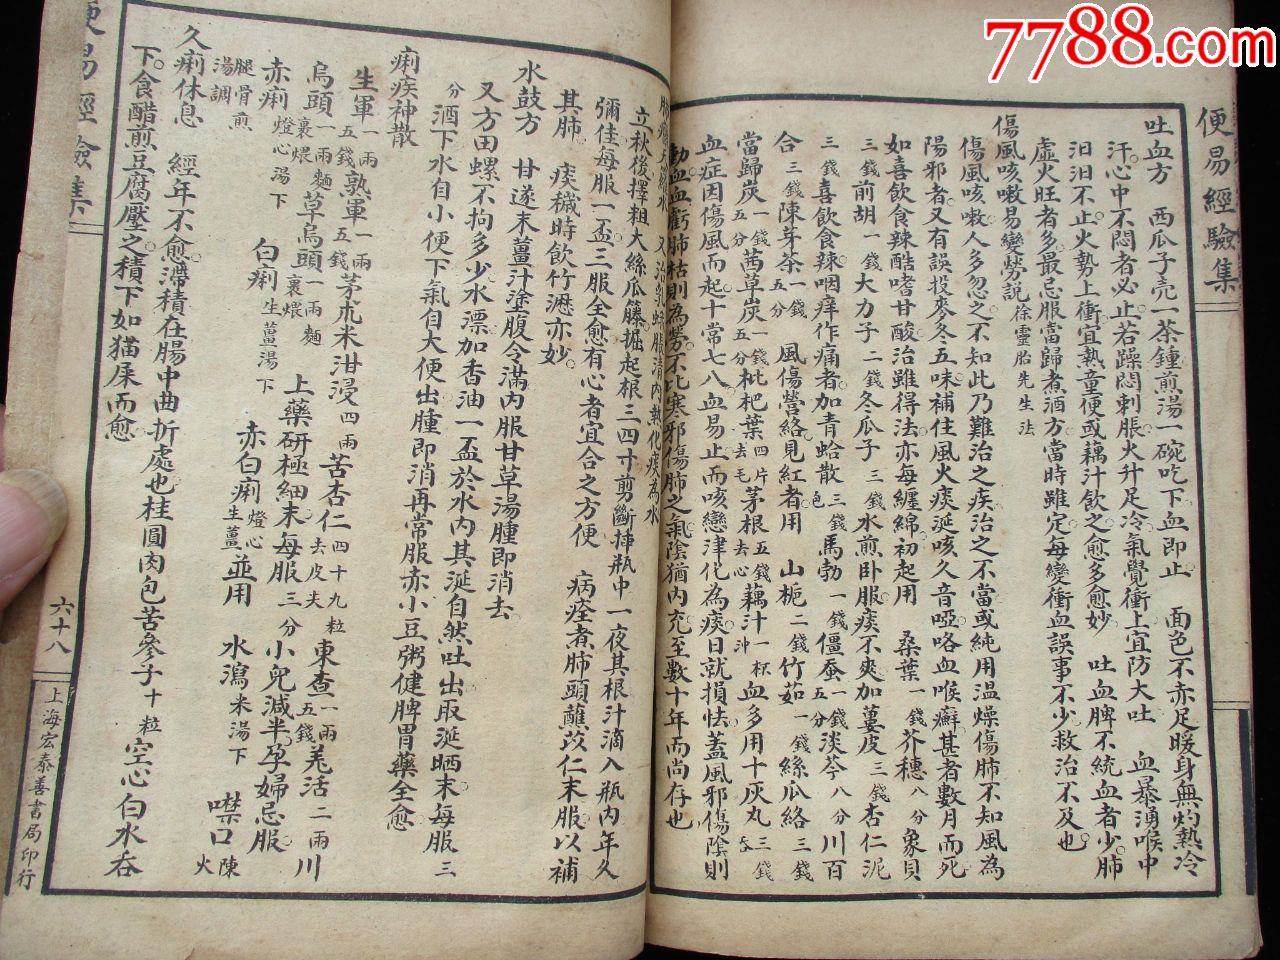 7788.com
便易經驗集
吐血方　西瓜子壳一茶鍾煎湯一碗吃下血即止　面色不赤足暖身無灼熱冷
汗心中不悶者必止若躁悶刺脹火升足冷氣覺衝上宜防大吐　血暴湧喉中
汨汨不止火勢上衝宜熱童便或藕汁飲之愈多愈妙　吐血脾不統血者少肺
虛火旺者多最忌服當歸煮酒方當時雖定每變衝血誤事不少救治不及也
傷風咳嗽易變勞說徐靈胎先生法
傷風咳嗽人多忽之不知此乃難治之疾治之不當或純用溫燥傷肺不知風為
陽邪者又有誤投麥冬五味補住風火痰涎咳久音啞咯血喉癬甚者數月而死
如喜飲食辣酷嗜甘酸治雖得法亦每纏綿初起用　桑葉一錢芥穗八分象貝
三錢前胡一錢大力子二錢冬瓜子三錢水煎卧服痰不爽加蔞皮三錢杏仁泥
三錢喜飲食辣咽痒作痛者加青蛤散三錢包馬勃一錢僵蚕一錢五分淡芩八分川百
合三錢陳芽茶一錢　風傷營絡見紅者用　山梔二錢竹茹一錢絲瓜絡三錢
當歸炭一錢五分茜草炭一錢五分枇杷葉四片去毛茅根五錢去心藕汁一杯沖血多用十灰丸三錢吞
血症因傷風而起十常七八血易止而咳戀津化為痰日就損怯蓋風邪傷陰則
動血血虧肺枯則為勞不比寒邪傷肺之氣陰猶內充至數十年而尚存也
立秋後擇粗大絲瓜藤掘起根三四寸剪斷揷瓶中一夜其根汁滴入瓶內年久
彌佳每服一盃二三服全愈有心者宜合之方便　病痊煮肺頭蘸苡仁末服以補
其肺　痰穢時飲竹瀝亦妙
水鼓方　甘遂末薑汁塗腹令滿內服甘草湯腫即消去
又方田螺不拘多少水漂加香油一盃於水內其涎自然吐出取涎晒末每服三
分酒下水自小便下氣自大便出腫即消再常服赤小豆粥健脾胃藥全愈
痢疾神散
生軍一兩五錢熟軍一兩五錢茅朮米泔浸四兩苦杏仁四十九粒去皮尖東查一兩五錢羌活二兩川
烏頭一兩麵裹煨草烏頭一兩麵裹煨　上藥研極細末每服三分小兒減半孕婦忌服
赤痢燈心湯下　白痢生薑湯下　赤白痢燈心生薑並用　水瀉米湯下　噤口陳火
腿骨煎湯調
久痢休息　經年不愈滯積在腸中曲折處也桂圓肉包苦參子十粒空心白水吞
下食醋煎豆腐壓之積下如猫屎而愈
便易經驗集
六十八
上海宏泰善書局印行